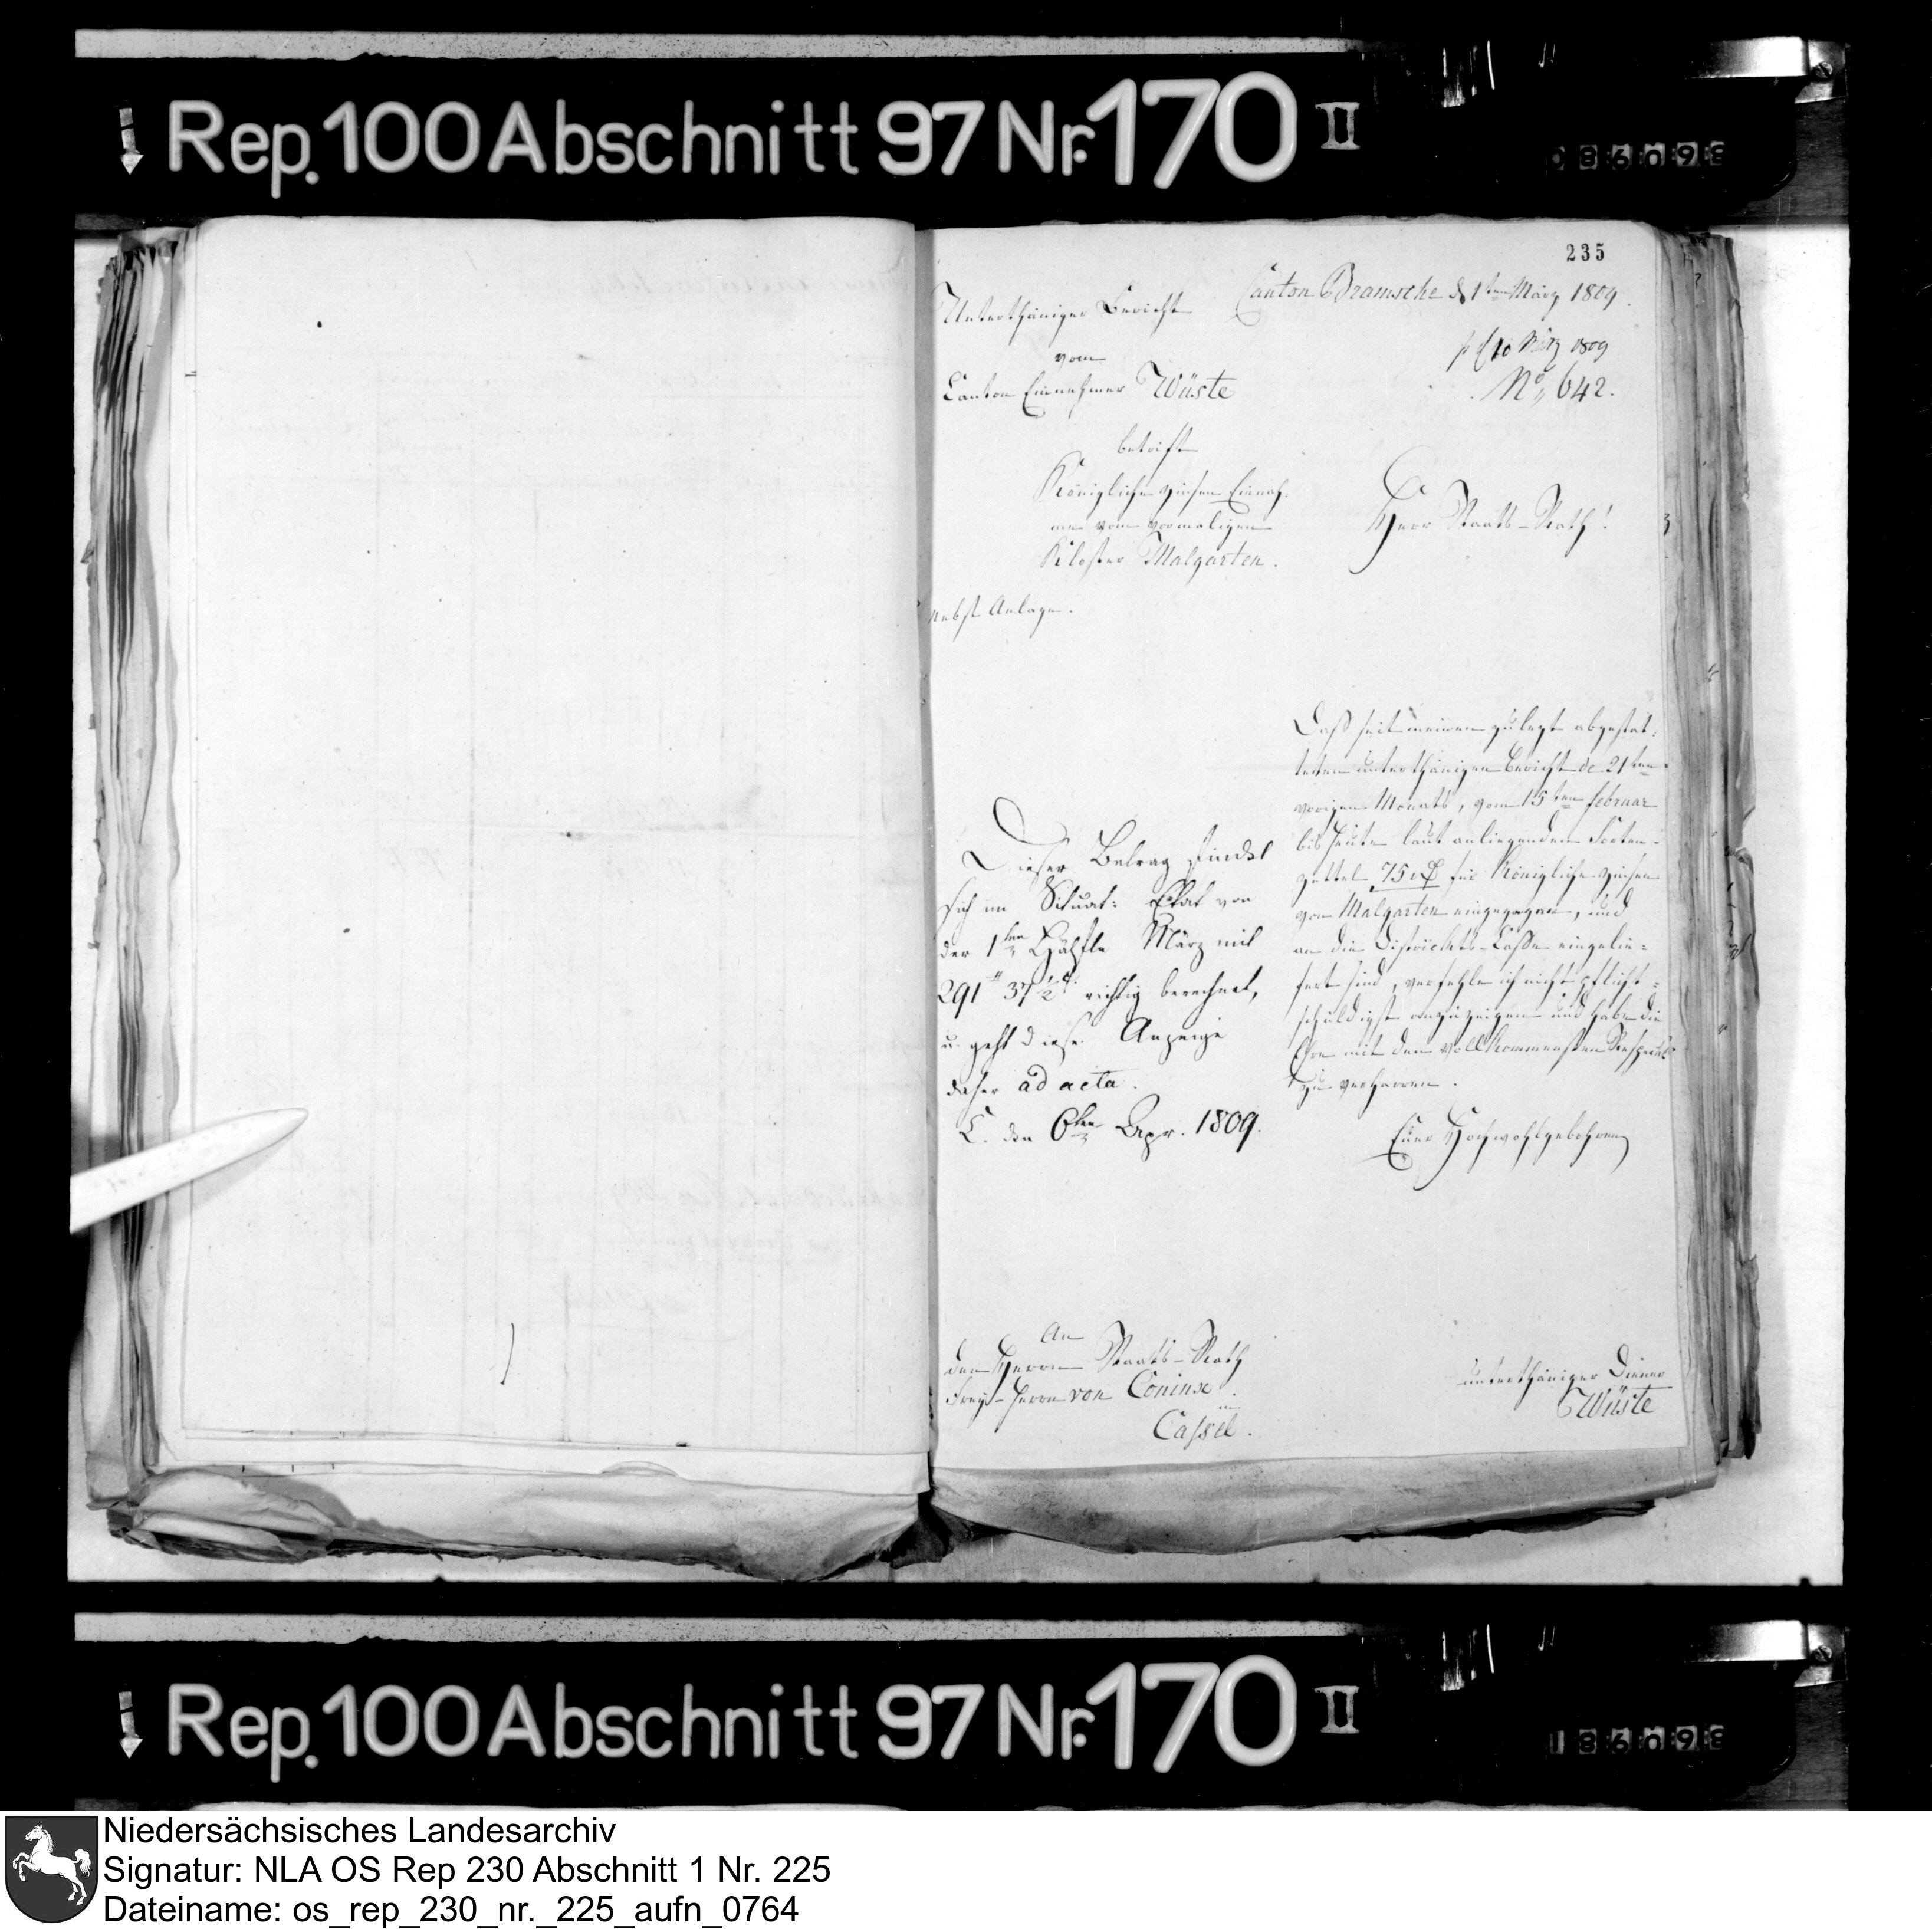 Rep. 100 Abschnitt 97 Nr. 170 II
235
Canton Bramsche d 1ten März 1809.
Unterthäniger Bericht
vom
Canton Einnehmer Wüste
p d 10 März 1809
No 642.
betrift
Königliche Zinsen Einnah-
me vom vormaligen
Kloster Malgarten.
nebst Anlage.
Herr Staats-Rath!
Daß seit meinem zulezt abgestat-
teten unterthänigen Bericht de 21ten
vorigen Monats, vom 15ten Februar
bis heute laut anliegenden Sorten-
zettel 75 rt für Königliche Zinsen
von Malgarten eingegangen, und
an die Districts-Casse eingelie-
fert sind, verfehle ich nicht pflicht-
schuldigst anzuzeigen und habe die
Ehre mit dem vollkommensten Respect
zu verharren.
Euer Hochwohlgebohren
Dieser Betrag findet
sich im Situat: Etat von
der 1ten Hälfte März mit
291 37½ richtig berechnet,
u. geht diese Anzeige
daher ad acta.
C. den 6ten Apr. 1809.
An
den Herrn Staats-Rath
Frey-Herrn von Coninx
in
Cassel.
unterthäniger Diener
Wüste
Rep. 100 Abschnitt 97 Nr. 170 II
Niedersächsisches Landesarchiv
Signatur: NLA OS Rep 230 Abschnitt 1 Nr. 225
Dateiname: os_rep_230_nr._225_aufn_0764